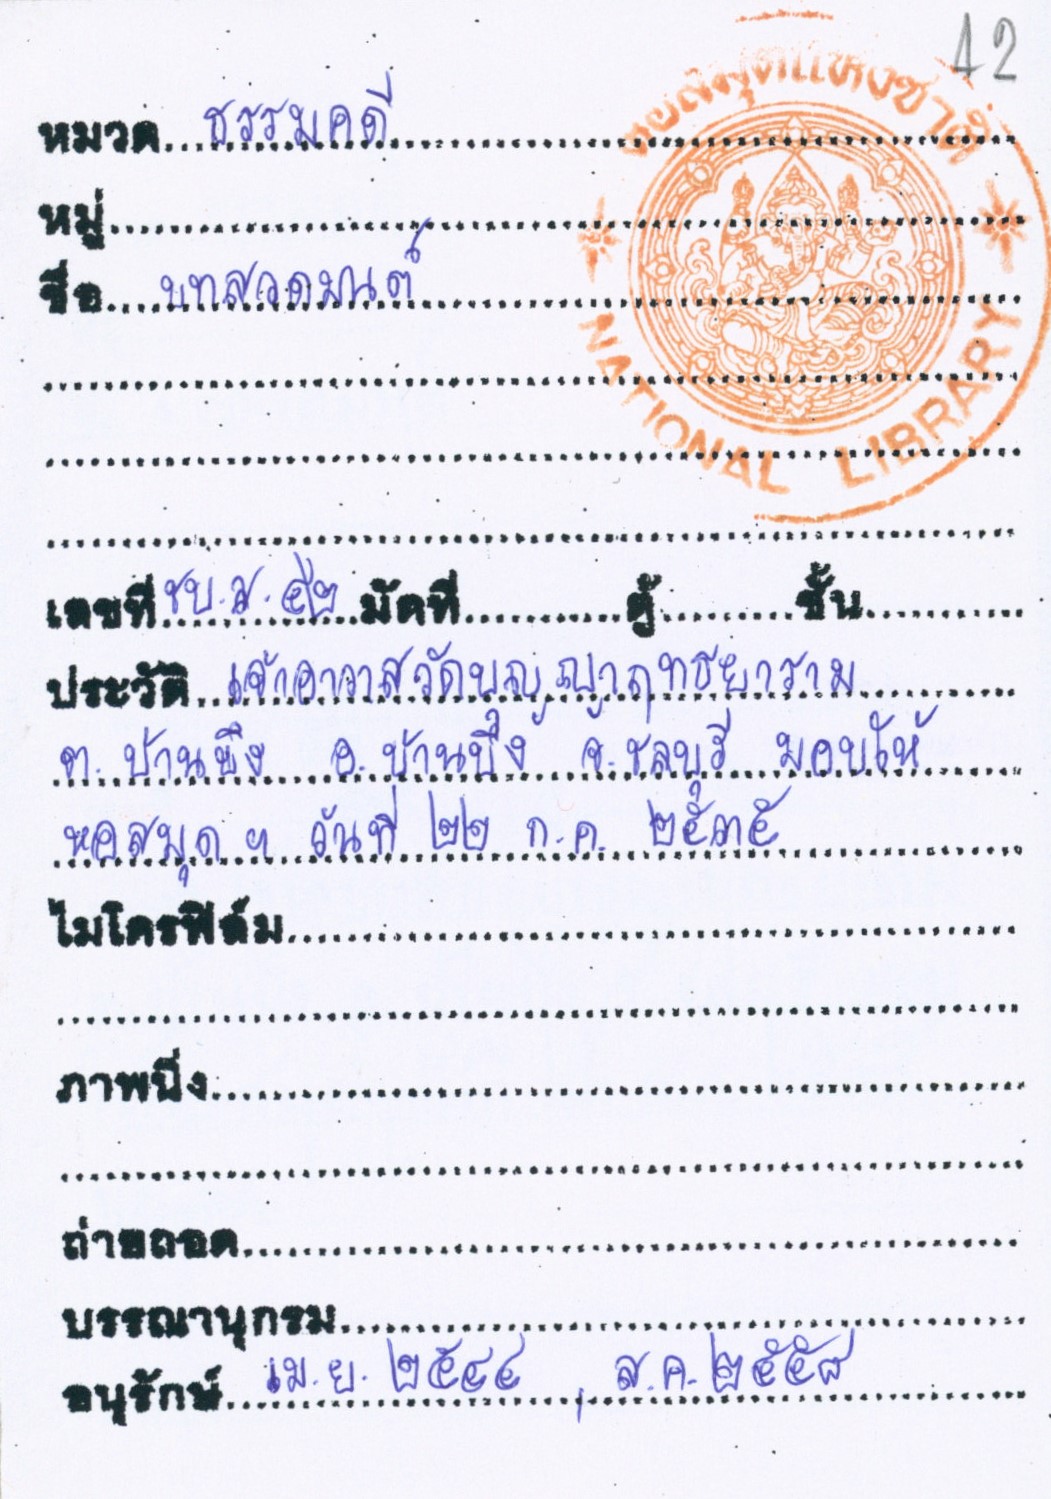 12
หอสมุดแห่งชาติ
NATIONAL LIBRARY
หมวด ธรรมคดี
หมู่
ชื่อ บทสวดมนต์
เลขที่ ชบ.ส. ๕๒ มัดที่ ตู้ ชั้น
ประวัติ เจ้าอาวาสวัดบุญญาฤทธยาราม
ต. บ้านบึง อ. บ้านบึง จ. ชลบุรี มอบให้
หอสมุด ฯ วันที่ ๒๒ ก.ค. ๒๕๓๕
ไมโครฟิล์ม
ภาพนิ่ง
ถ่ายถอด
บรรณานุกรม
อนุรักษ์ เม.ย. ๒๕๔๔ , ส.ค. ๒๕๕๘